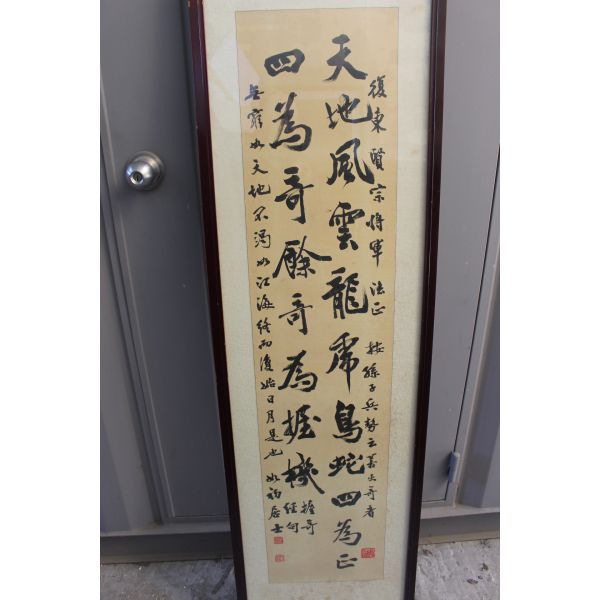 復東賢宗將軍 法正 按孫子兵勢云善出奇者
天地風雲龍虎鳥蛇四為正
四為奇餘奇為握機 握奇
經句
無窮如天地不竭如江海終而復始日月是也 居士